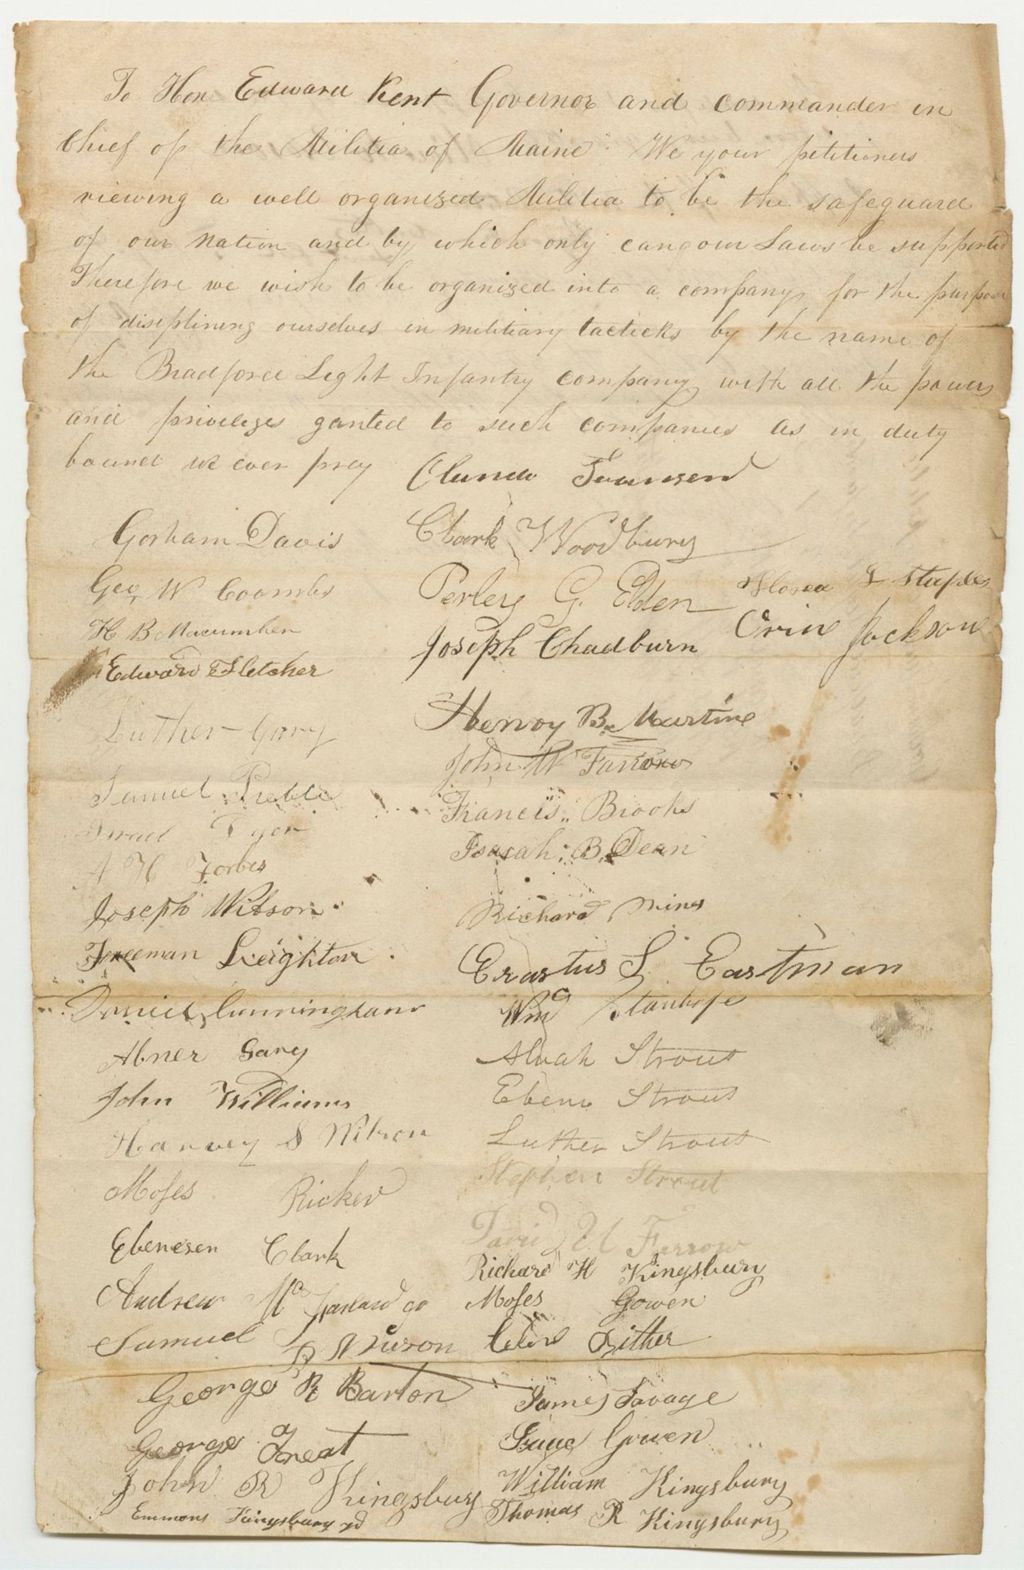 To Hon Edward Kent Governor and commander in
Chief of the Militia of Maine We your pititioners
viewing a well organized Militia to be the safeguard
of our Nation and by which only can our Laws be supported
Therefore we wish to be organized into a company for the purpose
of disiplining ourselves in military tacticks by the name of
the Bradford Light Infantry company with all the powers
and privileges ganted to such companies as in duty
bound we ever pray
Townsend
Gorham Davis
Clark Woodbury
Geo W Coombs
Perley G. Eden
Hosea Staples
H B Macumber
Joseph Chadburn
Orin Jackson
Edward Fletcher
Luther Gary
Henry B. Martine
John W Farrow
Samuel Preble
Francis Brooks
Isaiah B. Dean
A H Forbes
Joseph Wilson
Richard Mines
Freeman Leighton
Erastus S. Eastman
Daniel Cunningham
Wm Stanhope
Abner Gary
Alvah Strout
John Williams
Eben Strout
Harvey S Wilson
Luther Strout
Moses Ricker
Stephen Strout
David Farrow
Ebenesen Clark
Richard H Kingsbury
Andrew
Moses Gowen
Samuel
George R Barton
James Savage
George Treat
Isaac Gowen
John R Kingsbury
William Kingsbury
Emmons Kingsbury
Thomas R Kingsbury